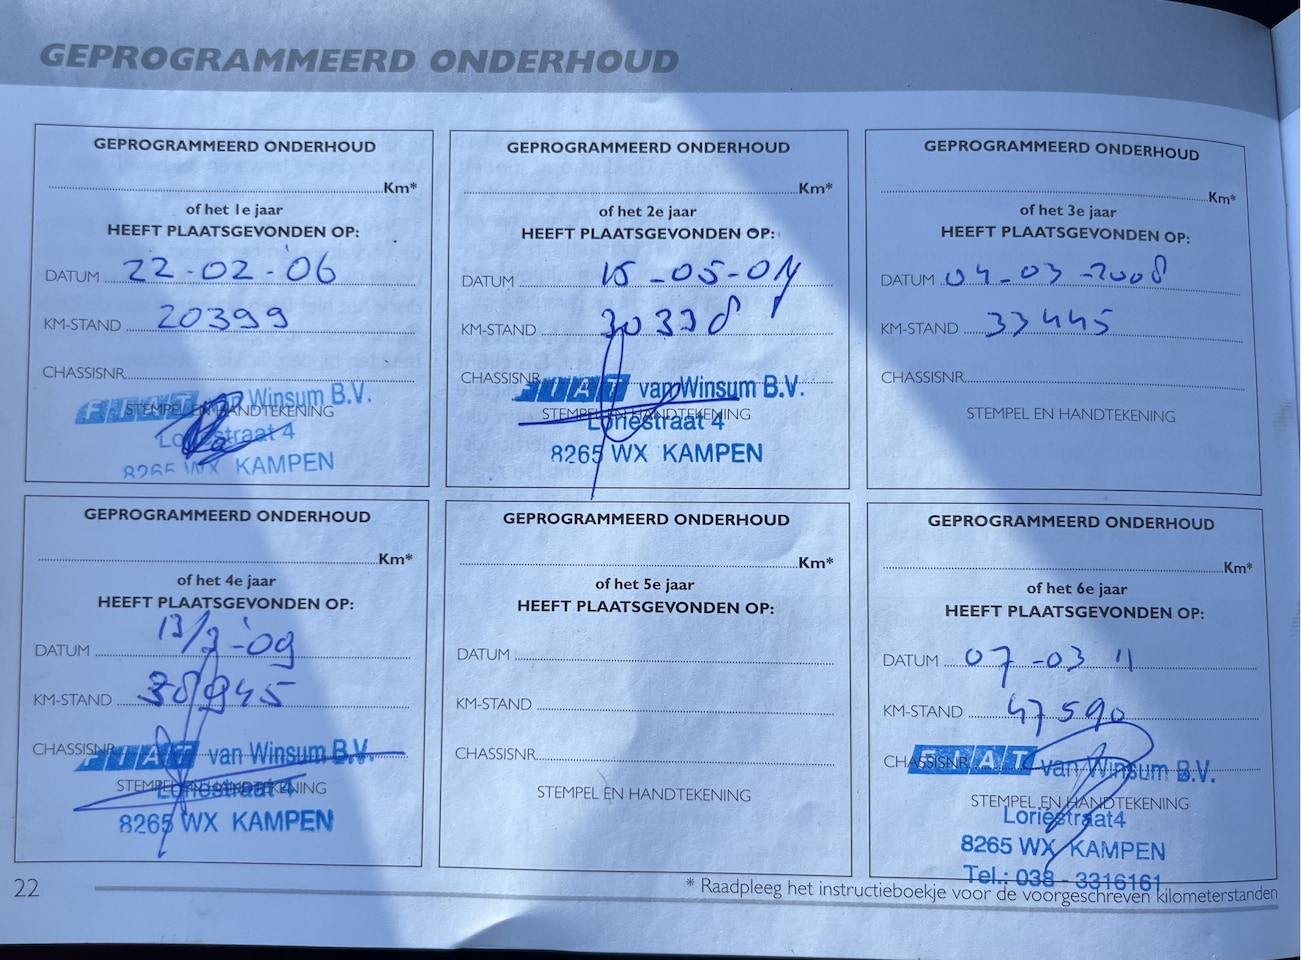 GEPROGRAMMEERD ONDERHOUD
GEPROGRAMMEERD ONDERHOUD
Km*
of het 1e jaar
HEEFT PLAATSGEVONDEN OP:
DATUM 22-02-'06
KM-STAND 20399
CHASSISNR.
FIAT van Winsum B.V.
STEMPEL EN HANDTEKENING
Loriestraat 4
8265 WX KAMPEN
GEPROGRAMMEERD ONDERHOUD
Km*
of het 2e jaar
HEEFT PLAATSGEVONDEN OP:
DATUM
KM-STAND
CHASSISNR.
FIAT van Winsum B.V.
STEMPEL EN HANDTEKENING
Loriestraat 4
8265 WX KAMPEN
GEPROGRAMMEERD ONDERHOUD
Km*
of het 3e jaar
HEEFT PLAATSGEVONDEN OP:
DATUM 04-03-2008
KM-STAND 33445
CHASSISNR.
STEMPEL EN HANDTEKENING
GEPROGRAMMEERD ONDERHOUD
Km*
of het 4e jaar
HEEFT PLAATSGEVONDEN OP:
DATUM
KM-STAND 38945
CHASSISNR.
FIAT van Winsum B.V.
STEMPEL EN HANDTEKENING
Loriestraat 4
8265 WX KAMPEN
GEPROGRAMMEERD ONDERHOUD
Km*
of het 5e jaar
HEEFT PLAATSGEVONDEN OP:
DATUM
KM-STAND
CHASSISNR.
STEMPEL EN HANDTEKENING
GEPROGRAMMEERD ONDERHOUD
Km*
of het 6e jaar
HEEFT PLAATSGEVONDEN OP:
DATUM 07-03 11
KM-STAND 47590
CHASSISNR.
FIAT van Winsum B.V.
STEMPEL EN HANDTEKENING
Loriestraat4
8265 WX KAMPEN
Tel.: 038 - 3316161
22
* Raadpleeg het instructieboekje voor de voorgeschreven kilometerstanden